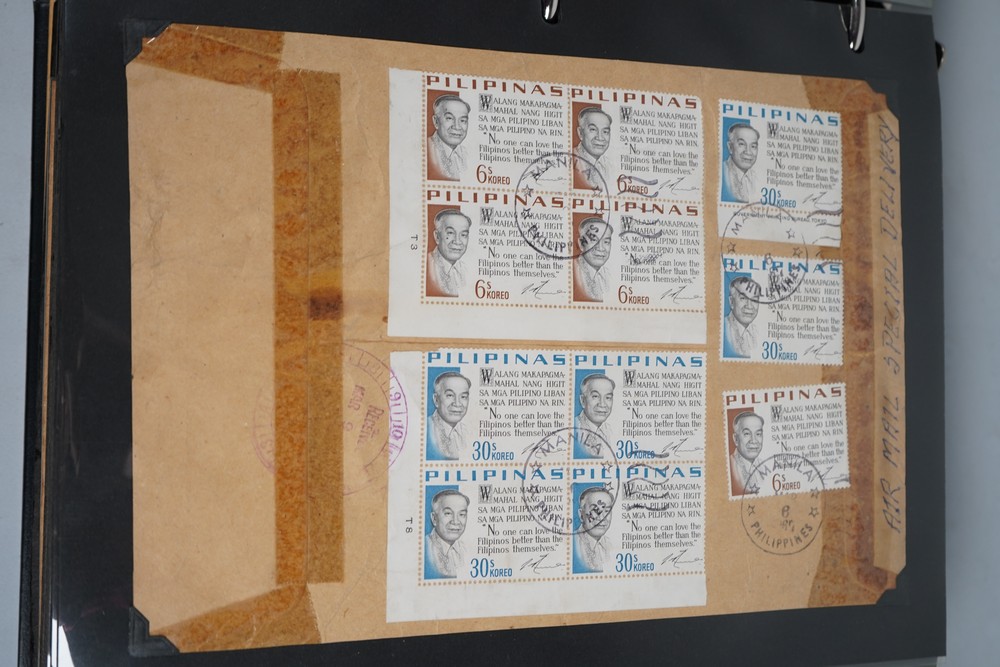 PILIPINAS
WALANG MAKAPAGMA-
MAHAL NANG HIGIT
SA MGA PILIPINO LIBAN
SA MGA PILIPINO NA RIN.
"No one can love the
Filipinos better than the
Filipinos themselves."
6s KOREO
PILIPINAS
WALANG MAKAPAGMA-
MAHAL NANG HIGIT
SA MGA PILIPINO LIBAN
SA MGA PILIPINO NA RIN.
"No one can love the
Filipinos better than the
Filipinos themselves."
6s KOREO
PILIPINAS
WALANG MAKAPAGMA-
MAHAL NANG HIGIT
SA MGA PILIPINO LIBAN
SA MGA PILIPINO NA RIN.
"No one can love the
Filipinos better than the
Filipinos themselves."
6s KOREO
PILIPINAS
WALANG MAKAPAGMA-
MAHAL NANG HIGIT
SA MGA PILIPINO LIBAN
SA MGA PILIPINO NA RIN.
"No one can love the
Filipinos better than the
Filipinos themselves."
6s KOREO
T3
MANILA
PHILIPPINES
PILIPINAS
WALANG MAKAPAGMA-
MAHAL NANG HIGIT
SA MGA PILIPINO LIBAN
SA MGA PILIPINO NA RIN.
"No one can love the
Filipinos better than the
Filipinos themselves."
30s KOREO
PILIPINAS
WALANG MAKAPAGMA-
MAHAL NANG HIGIT
SA MGA PILIPINO LIBAN
SA MGA PILIPINO NA RIN.
"No one can love the
Filipinos better than the
Filipinos themselves."
30s KOREO
PILIPINAS
WALANG MAKAPAGMA-
MAHAL NANG HIGIT
SA MGA PILIPINO LIBAN
SA MGA PILIPINO NA RIN.
"No one can love the
Filipinos better than the
Filipinos themselves."
30s KOREO
PILIPINAS
WALANG MAKAPAGMA-
MAHAL NANG HIGIT
SA MGA PILIPINO LIBAN
SA MGA PILIPINO NA RIN.
"No one can love the
Filipinos better than the
Filipinos themselves."
30s KOREO
T8
MANILA
PHILIPPINES
PILIPINAS
WALANG MAKAPAGMA-
MAHAL NANG HIGIT
SA MGA PILIPINO LIBAN
SA MGA PILIPINO NA RIN.
"No one can love the
Filipinos better than the
Filipinos themselves."
30s KOREO
PHILIPPINES
PILIPINAS
WALANG MAKAPAGMA-
MAHAL NANG HIGIT
SA MGA PILIPINO LIBAN
SA MGA PILIPINO NA RIN.
"No one can love the
Filipinos better than the
Filipinos themselves."
30s KOREO
PILIPINAS
WALANG MAKAPAGMA-
MAHAL NANG HIGIT
SA MGA PILIPINO LIBAN
SA MGA PILIPINO NA RIN.
"No one can love the
Filipinos better than the
Filipinos themselves."
6s KOREO
MANILA
PHILIPPINES
AIR MAIL SPECIAL DELIVERY